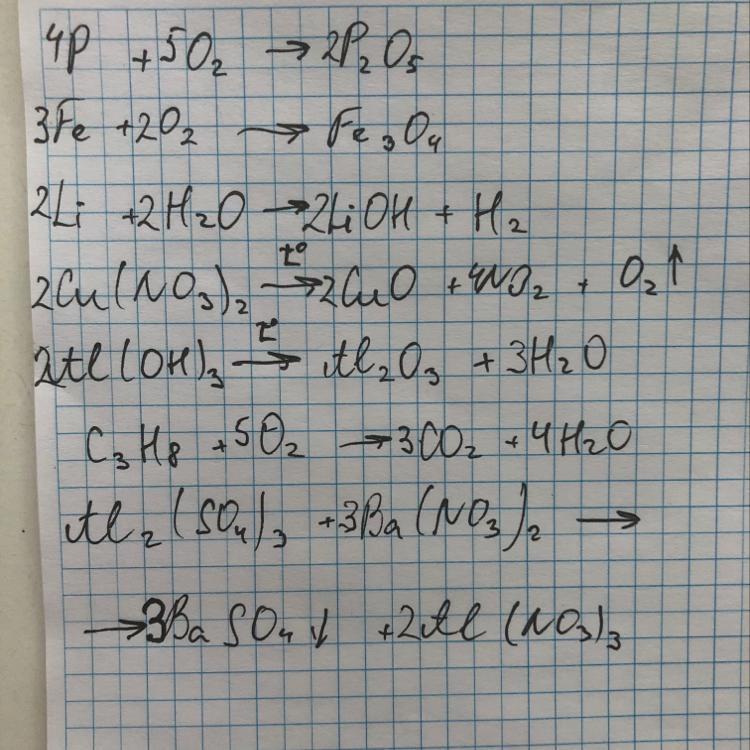 4P + 5O₂ → 2P₂O₅
3Fe + 2O₂ → Fe₃O₄
2Li + 2H₂O → 2LiOH + H₂
2Cu(NO₃)₂ →t° 2CuO + 4NO₂ + O₂↑
2Al(OH)₃ →t° Al₂O₃ + 3H₂O
C₃H₈ + 5O₂ → 3CO₂ + 4H₂O
Al₂(SO₄)₃ + 3Ba(NO₃)₂ →
→ 3BaSO₄↓ + 2Al(NO₃)₃